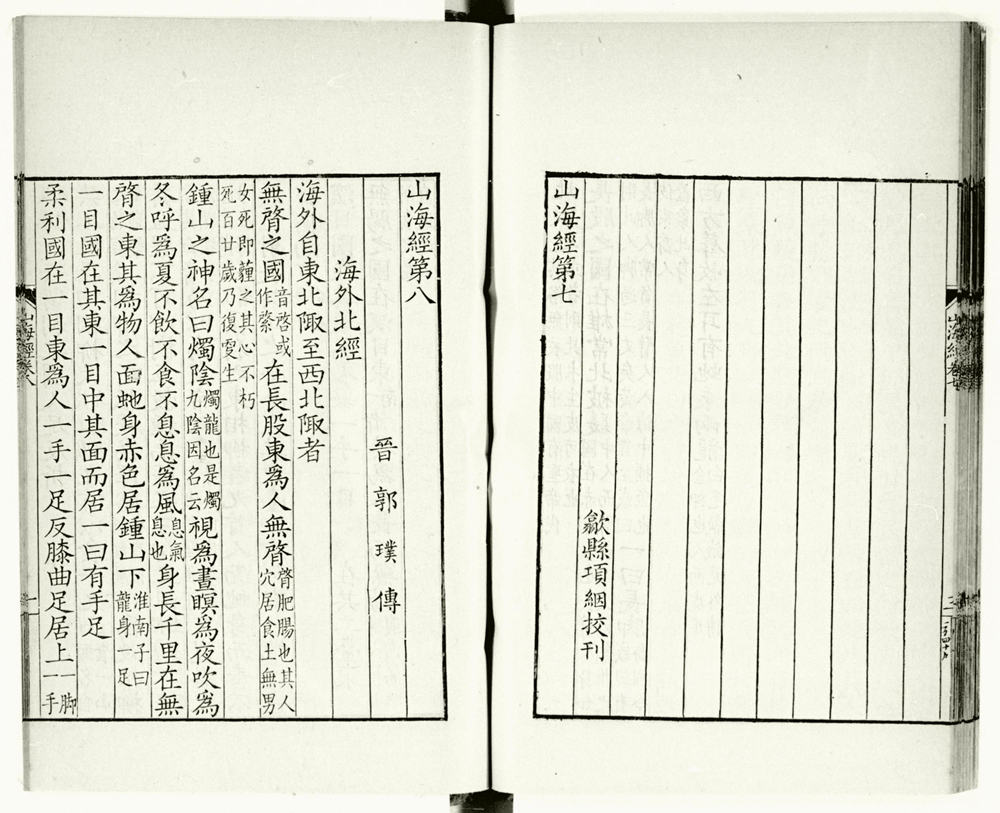 山海經第七
歙縣項絪挍刊
山海經第八
海外北經
晉郭璞傳
海外自東北陬至西北陬者
無䏿之國音啓或作綮在長股東爲人無䏿䏿肥腸也其人穴居食土無男
女死即薶之其心不朽死百廿歲乃復更生
鍾山之神名曰燭陰燭龍也是燭九陰因名云視爲晝瞑爲夜吹爲
冬呼爲夏不飲不食不息息爲風息氣息也身長千里在無
䏿之東其爲物人面虵身赤色居鍾山下淮南子曰龍身一足
一目國在其東一目中其面而居一曰有手足
柔利國在一目東爲人一手一足反膝曲足居上一脚一手
山海經卷八